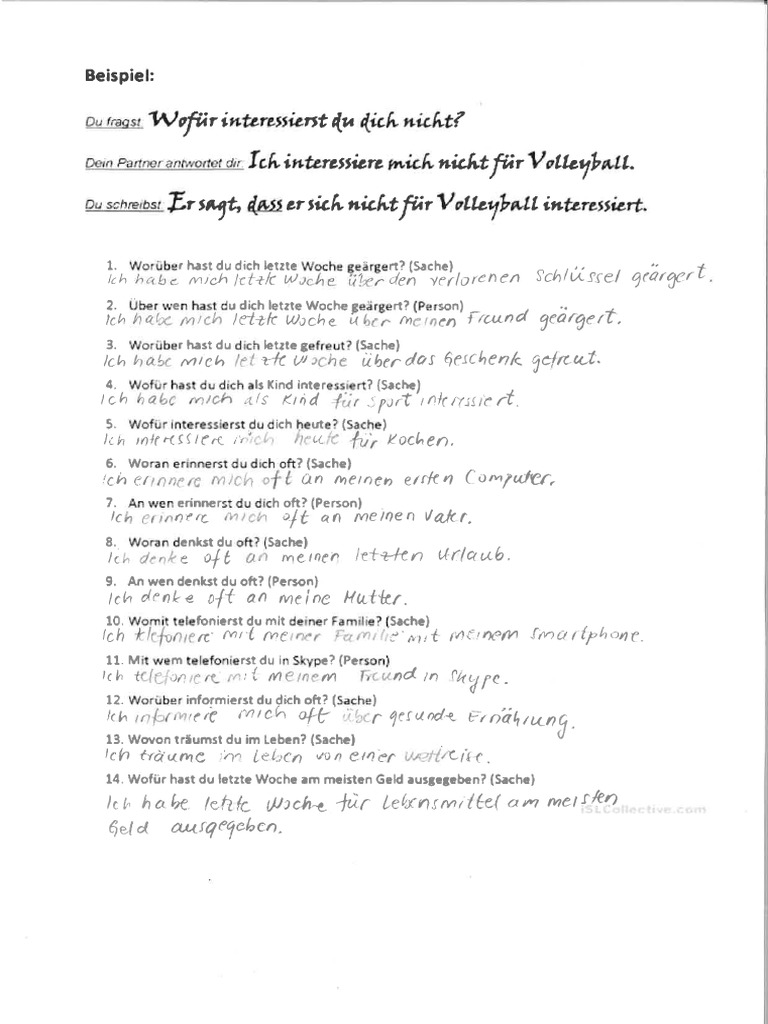 Beispiel:
Du fragst Wofür interessierst du dich nicht?
Dein Partner antwortet dir Ich interessiere mich nicht für Volleyball.
Du schreibst Er sagt, dass er sich nicht für Volleyball interessiert.
1. Worüber hast du dich letzte Woche geärgert? (Sache)
Ich habe mich letzte Woche über den verlorenen Schlüssel geärgert.
2. Über wen hast du dich letzte Woche geärgert? (Person)
Ich habe mich letzte Woche über meinen Freund geärgert.
3. Worüber hast du dich letzte gefreut? (Sache)
Ich habe mich letzte Woche über das Geschenk gefreut.
4. Wofür hast du dich als Kind interessiert? (Sache)
Ich habe mich als Kind für Sport interessiert.
5. Wofür interessierst du dich heute? (Sache)
Ich interessiere mich heute für Kochen.
6. Woran erinnerst du dich oft? (Sache)
Ich erinnere mich oft an meinen ersten Computer.
7. An wen erinnerst du dich oft? (Person)
Ich erinnere mich oft an meinen Vater.
8. Woran denkst du oft? (Sache)
Ich denke oft an meinen letzten Urlaub.
9. An wen denkst du oft? (Person)
Ich denke oft an meine Mutter.
10. Womit telefonierst du mit deiner Familie? (Sache)
Ich telefoniere mit meiner Familie mit meinem Smartphone.
11. Mit wem telefonierst du in Skype? (Person)
Ich telefoniere mit meinem Freund in Skype.
12. Worüber informierst du dich oft? (Sache)
Ich informiere mich oft über gesunde Ernährung.
13. Wovon träumst du im Leben? (Sache)
Ich träume im Leben von einer Weltreise.
14. Wofür hast du letzte Woche am meisten Geld ausgegeben? (Sache)
Ich habe letzte Woche für Lebensmittel am meisten
iSLCollective.com
Geld ausgegeben.